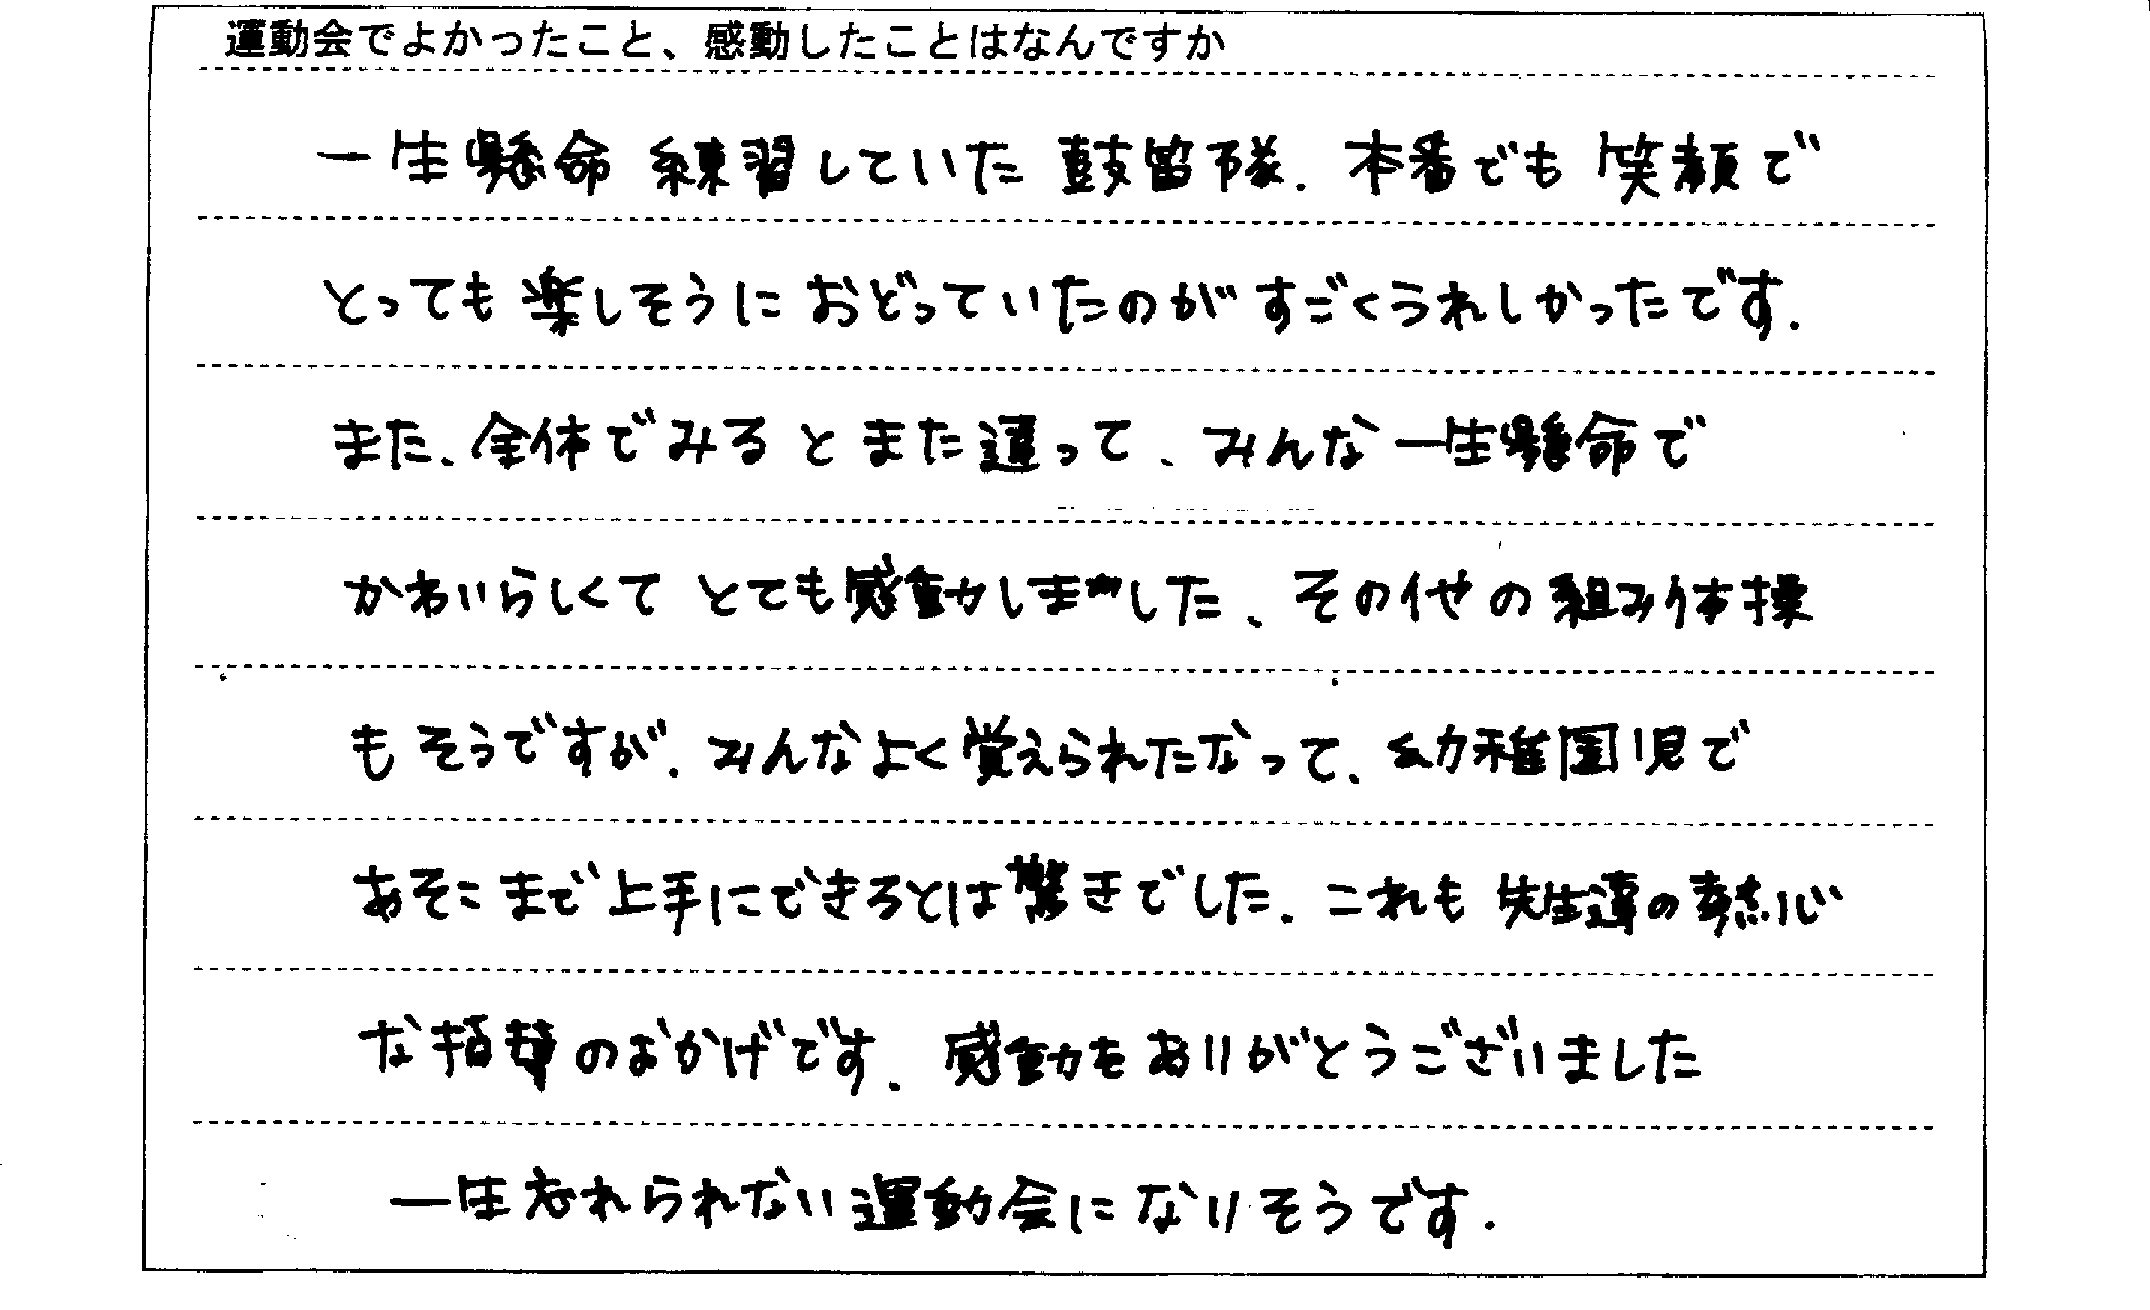 運動会でよかったこと、感動したことはなんですか
一生懸命練習していた鼓笛隊、本番でも笑顔で
とっても楽しそうにおどっていたのがすごくうれしかったです。
また、全体でみるとまた違って、みんな一生懸命で
かわいらしくてとても感動しました、その他の組み体操
もそうですが、みんなよく覚えられたなって、幼稚園児で
あそこまで上手にできるとは驚きでした。これも先生達の熱心
な指導のおかげです。感動をありがとうございました
一生忘れられない運動会になりそうです。